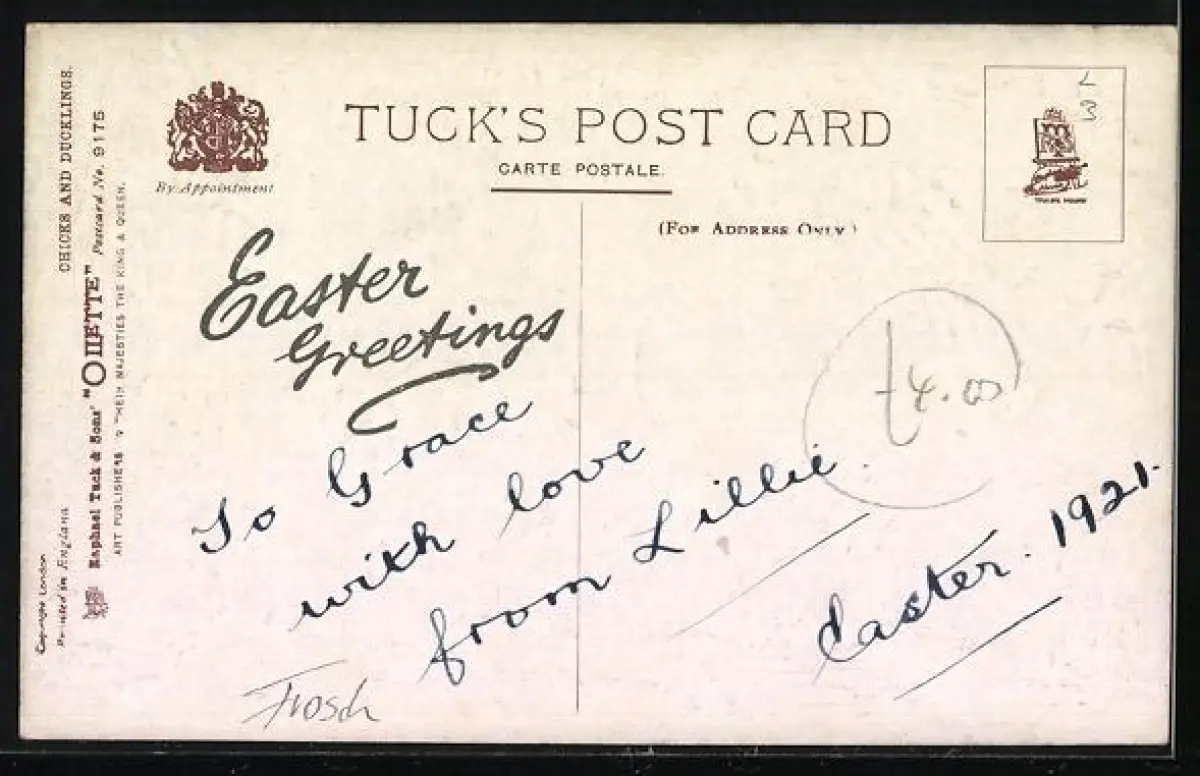 CHICKS AND DUCKLINGS.
Raphael Tuck & Sons' "OILETTE" Postcard No. 9175
ART PUBLISHERS TO THEIR MAJESTIES THE KING & QUEEN.
Copyright London
Printed in England
By Appointment
TUCK'S POST CARD
CARTE POSTALE.
(FOR ADDRESS ONLY)
Easter
Greetings
To Grace
with love
from Lillie.
Easter. 1921.
4.00
Frosch
L
3